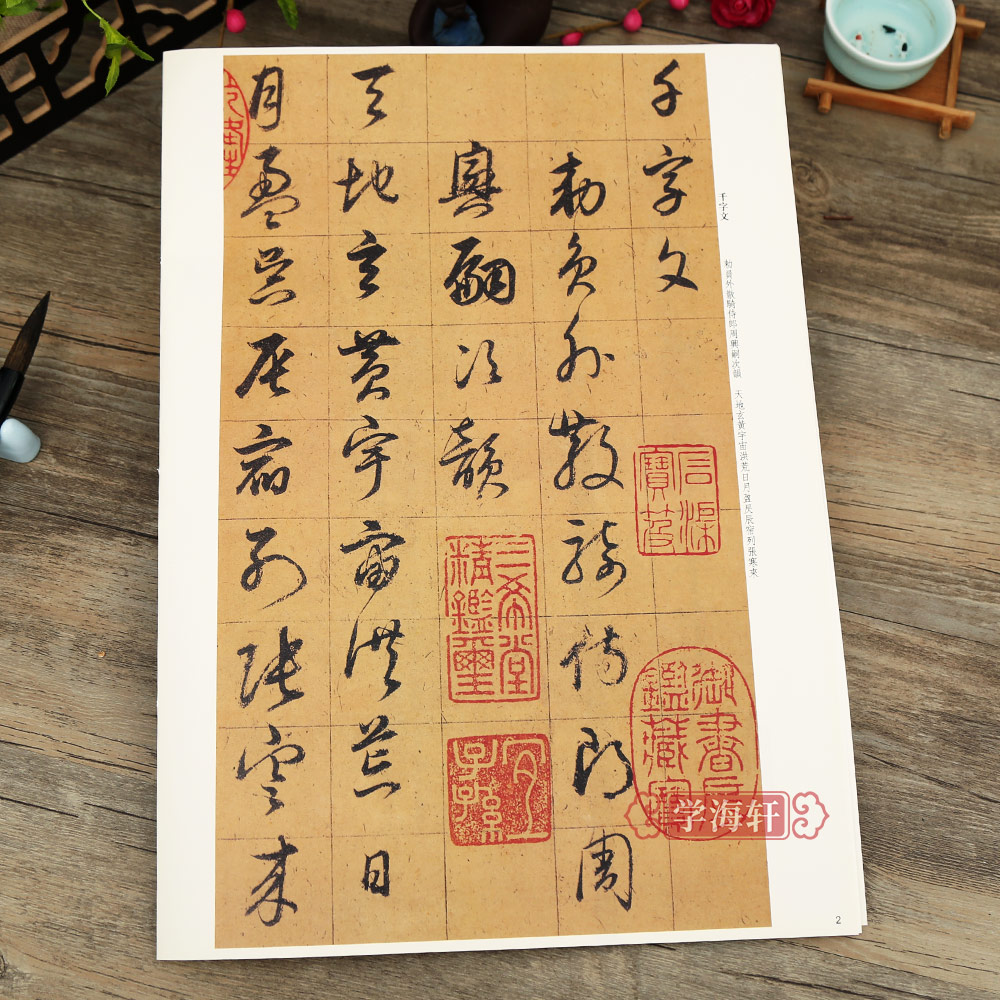 千字文
勑員外散騎侍郎周興嗣次韻 天地玄黄宇宙洪荒日月盈昃辰宿列張寒来
千字文
勑員外散騎侍郎周
興嗣次韻
天地玄黄宇宙洪荒日
月盈昃辰宿列張寒来
石渠寶笈
御書房鑑藏寶
三希堂精鑑璽
宜子孫
学海轩
2